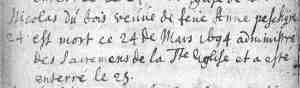 Nicolas du bois veuue de feue Anne
24 est mort ce 24 de Mars 1694 administré
des Sacremens de la Ste Eglise et a esté
enterré le 25.